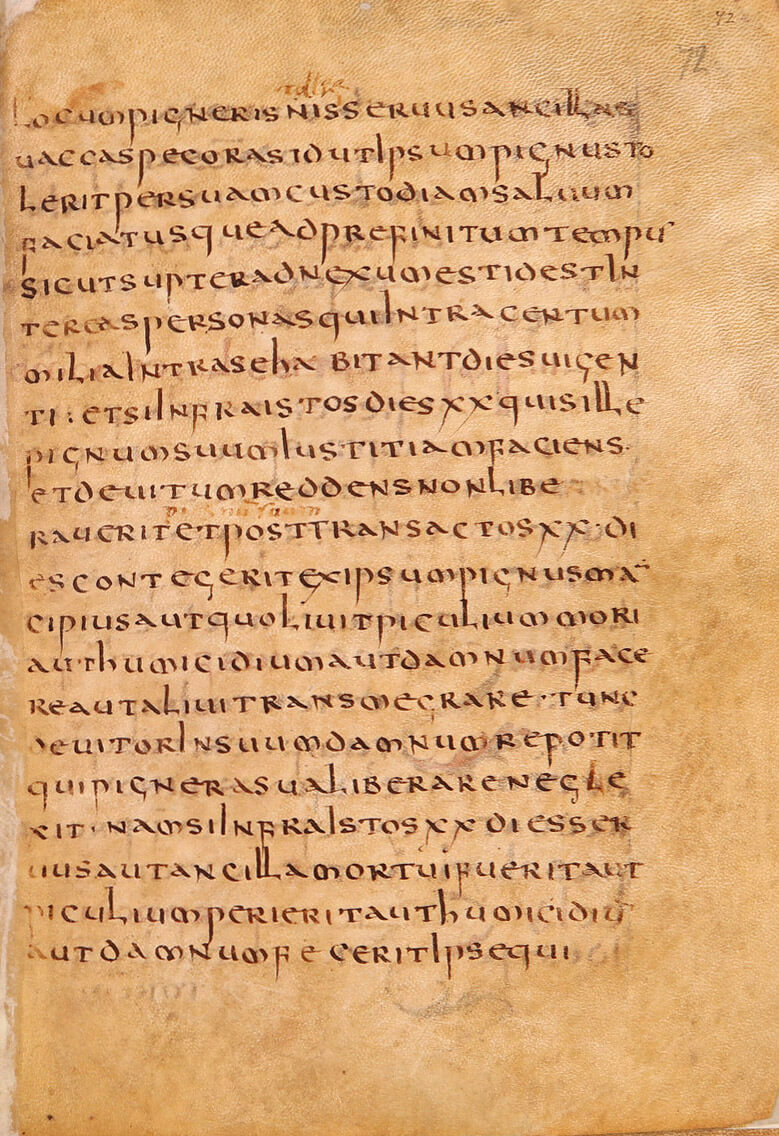 72
72
locum pigneris nis seruus ancillas
uaccas pecoras id ut ipsum pignus to
lerit per suam custodiam saluum
faciat usque ad prefinitum tempus
sicut supter adnexum est id est in
ter cas personas qui intra centum
milia intra se habitant dies uigen
ti : et si infra istos dies xx quis ille
pignum suum iustitiam faciens
et deuitum reddens non libe
rauerit et post transactos xx · di
es contegerit ex ipsum pignus ma
cipius aut quoliuit piculium mori
aut humicidium aut damnum face
re aut aliui transmegrare · tunc
deuitor in suum damnum repotit
qui pignera sua liberare negle
xit · nam si infra istos xx dies ser
uus aut ancilla mortui fuerit aut
piculium perierit aut humicidiū
aut damnum fecerit ipse qui